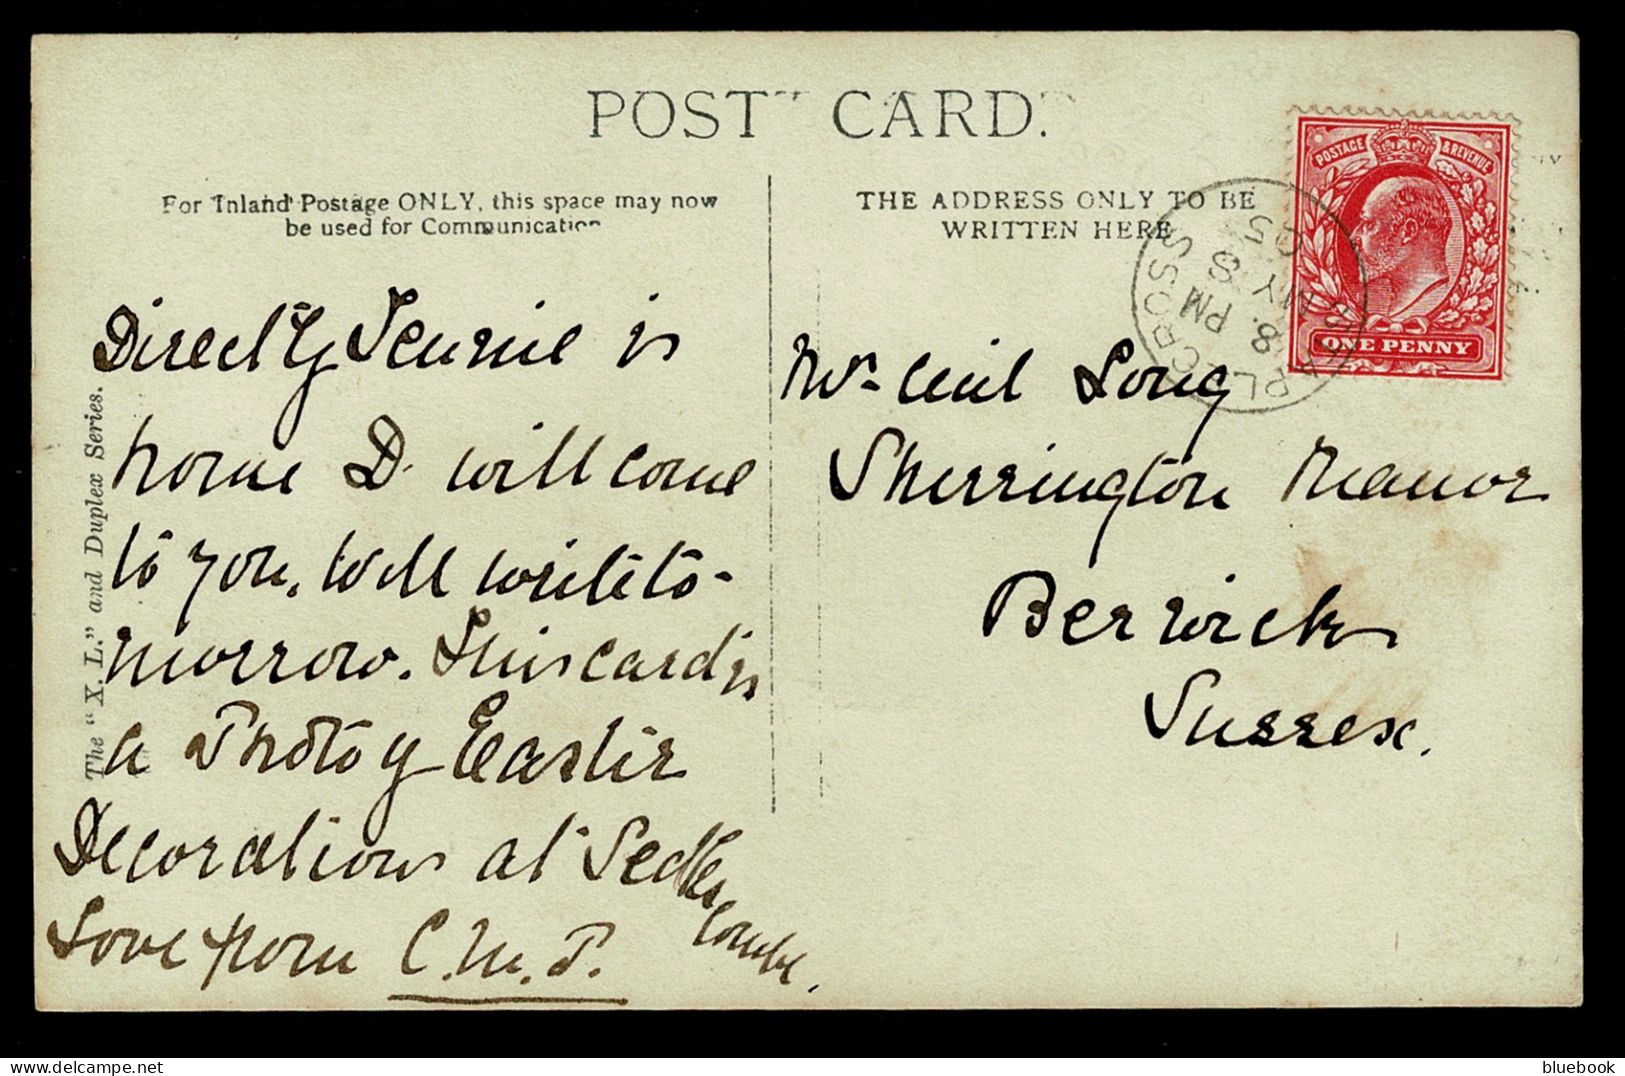 POST CARD.
For Inland Postage ONLY, this space may now
be used for Communication
THE ADDRESS ONLY TO BE
WRITTEN HERE
The "X.L." and Duplex Series.
Directly Jennie is
home D. will come
to you. Will write to-
morrow. This card is
a Photo of Easter
Decorations at Sedles
combe.
Love from C.M.P.
Mrs. Cecil Long
Sherrington Manor
Berwick
Sussex.
POSTAGE & REVENUE
ONE PENNY
CROSS
8 PM
8. MY
05
bluebook